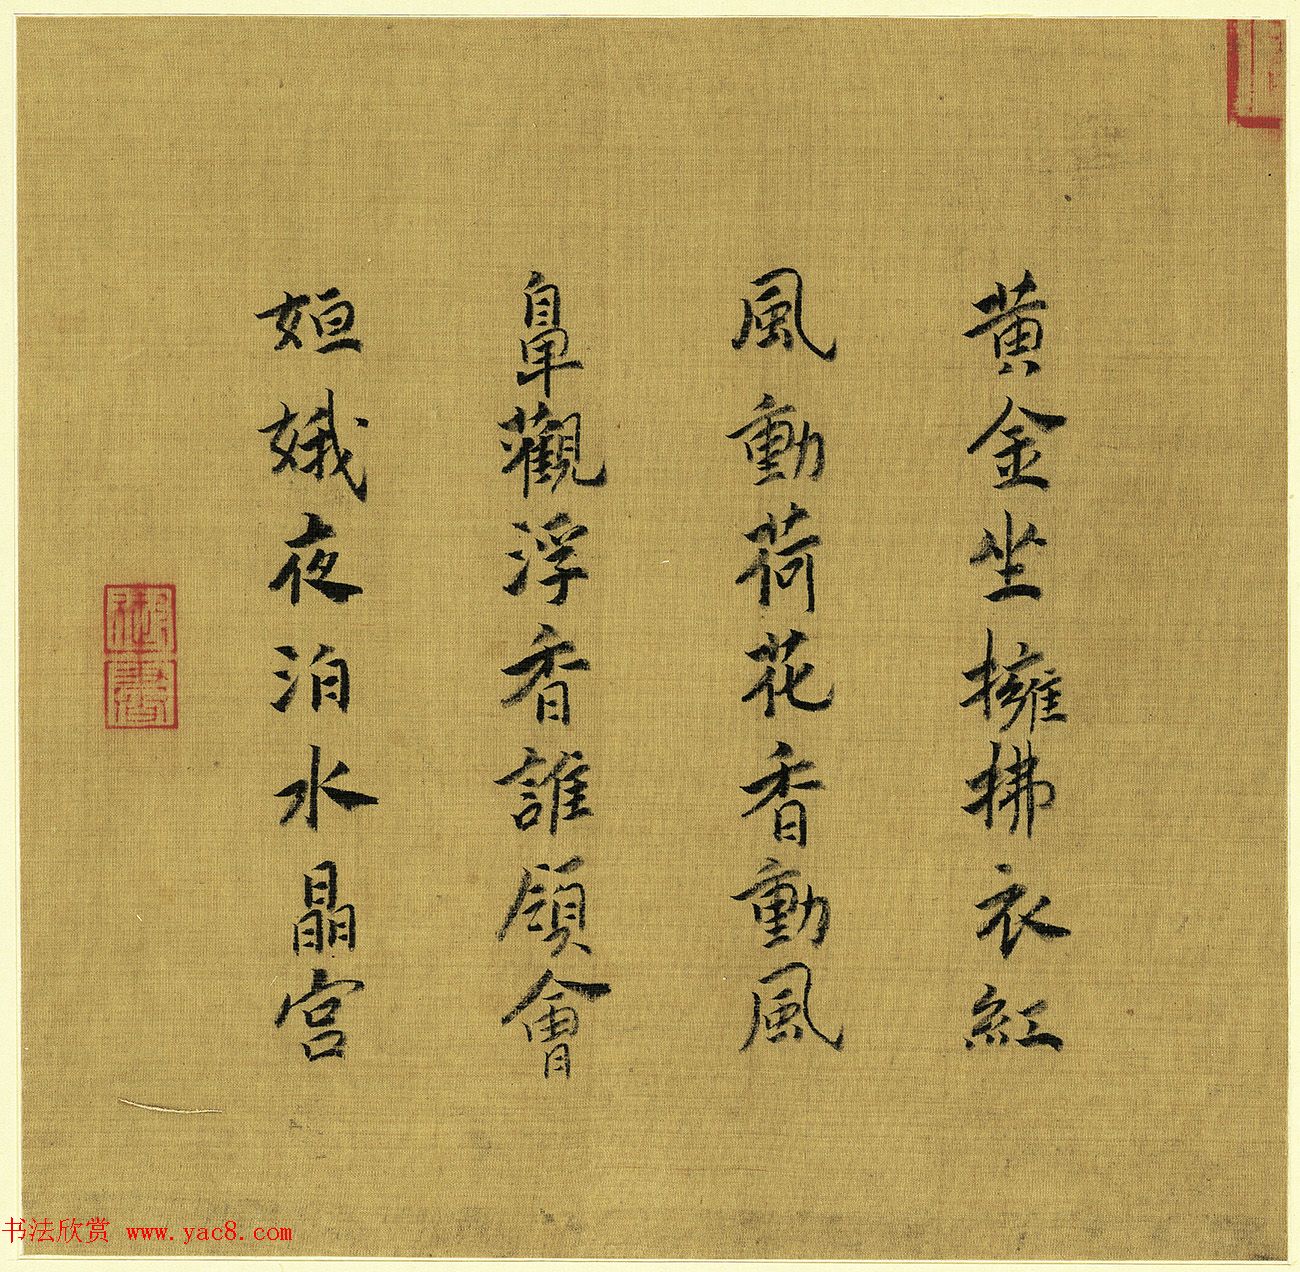 黄金坐擁拂衣紅
風動荷花香動風
鼻觀浮香誰領會
姮娥夜泊水晶宫
御書
书法欣赏 www.yac8.com